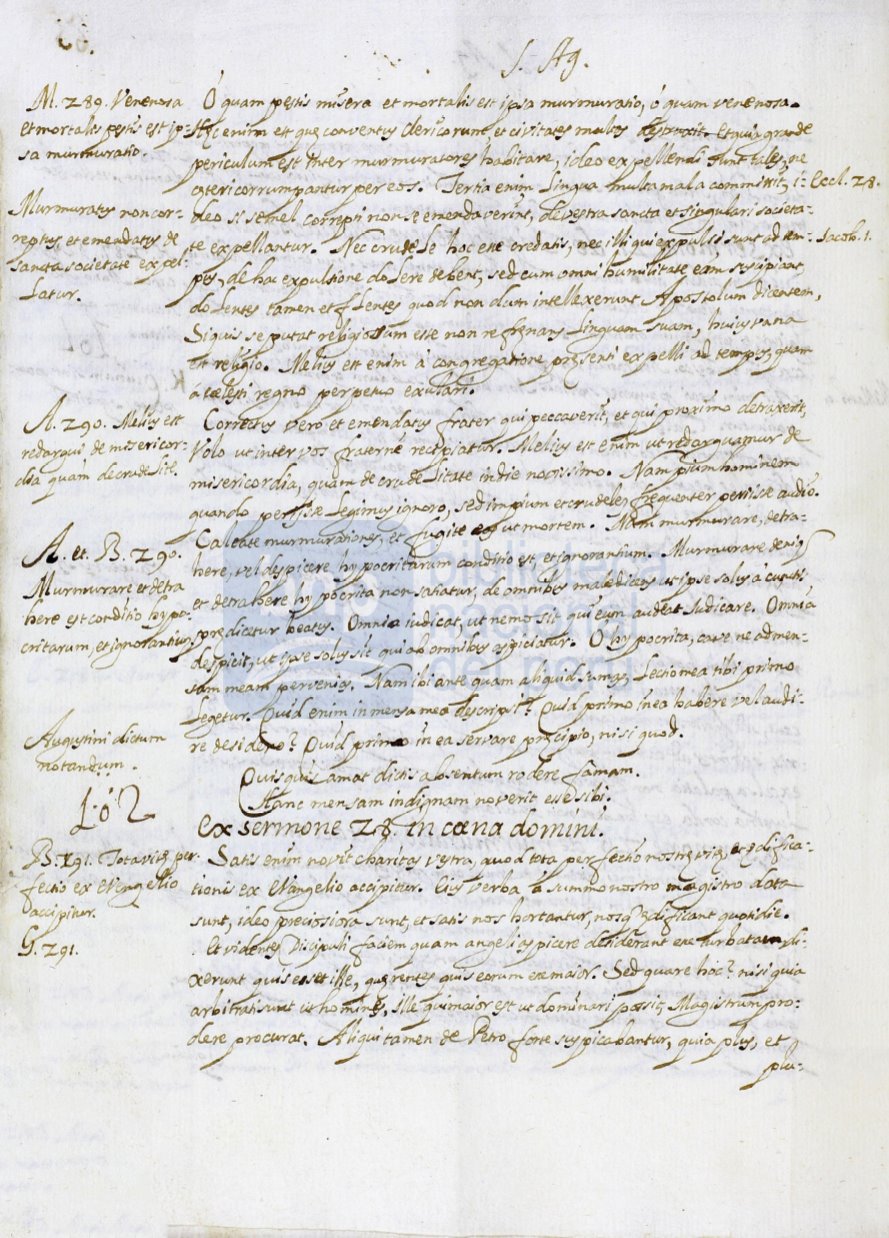 S. Ag.
M. 289. Venenosa
et mortalis pęstis est ip-
sa murmuratio.
Murmuratus non cor-
reptus, et emendatus de
sancta societate expel-
latur.
A. 290. Melius est
redargui de misericor-
dia quàm de crudelitē.
A. et. B. 290.
Murmurare et detra
here est conditio hypo-
critarum, et ignorantium
Augustini dictum
notandum.
102
B. 291. Tota vitę per-
fectio ex Evangelio
accipitur.
G. 291.
O quam pęstis misera et mortalis est ipsa murmuratio, ó quam venenosa.
Hęc enim est quę conventus clericorum et civitates multas destruxit. Et quia grande
periculum est inter murmuratores habitare, ideo expellendi sunt tales, ne
cęteri corrumpantur per eos. Tertia enim lingua multa mala committit, i-
deo si semel correpti non se emendaverint, de vestra sancta et singulari societa-
te expellantur. Nec crudele hoc esse credatis, nec illi qui expulsi sunt ad tem-
pus, de hac expulsione dolere debent, sed cum omni humilitate eam suscipiant,
dolentes tamen et flentes quod nondum intellexerunt Apostolum dicentem,
Siquis se putat religiosum esse non refręnans linguam suam, huius vana
est religio. Melius est enim à congregatione pręsenti expelli ad tempus, quam
á cœlesti regno perpetuo exulari.
Correctus vero et emendatus frater qui peccaverit, et qui proximo detraxerit,
Volo ut inter vos fraternè recipiatur. Melius est enim ut redarguamur de
misericordia, quam de crudelitate in die novissimo. Nam pium hominem
quando perijsse legimus ignoro, sed impium et crudelem frequenter perisse audio.
Caveate murmurationes, et fugite eas ut mortem. Nam murmurare, detra-
here, vel despicere hypocritarum conditio est, et ignorantium. Murmurare deniq
et detrahere hypocrita non satiatur, de omnibus maledicens ut ipse solus à cunctis
prędicetur beatus. Omnia iudicat, ut nemo sit qui eum audeat Iudicare. Omnia
despicit, ut ipse solus sit qui ab omnibus aspiciatur. O hypocrita, cave ne ad men-
sam meam pervenias. Nam ibi ante quam aliquid sumas, lectio mea tibi primo
legetur. Quid enim in mensa mea descripsi? Quid primo in ea habere vel audi-
re desidero? Quid primo in ea servare pręcipio, nisi quod.
Quisquis amat dictis absentum rodere famam.
Hanc mensam indignam noverit esse sibi.
ex sermone 28. in cœna domini.
Satis enim novit charitas vestra, quod tota perfectio nostrę vitę et ędifica-
tionis ex Evangelio accipitur. Eius verba a summo nostro magistro data
sunt, ideo preciosiora sunt, et satis nos hortantur, nosq ędificant quotidie.
Et videntes Discipuli faciem quam angeli aspicere desiderant esse turbatam di-
xerunt quis esset ille, quęrentes quis eorum esse maior. Sed quare hoc? nisi quia
arbitrati sunt ut homines, ille qui maior est ut dominari possit, Magistrum pro-
dere procurat. Aliqui tamen de Petro forte suspicabantur, quia plus, et
plu-
Eccl. 28.
Iacob. 1.
biblioteca
nacional
del perú